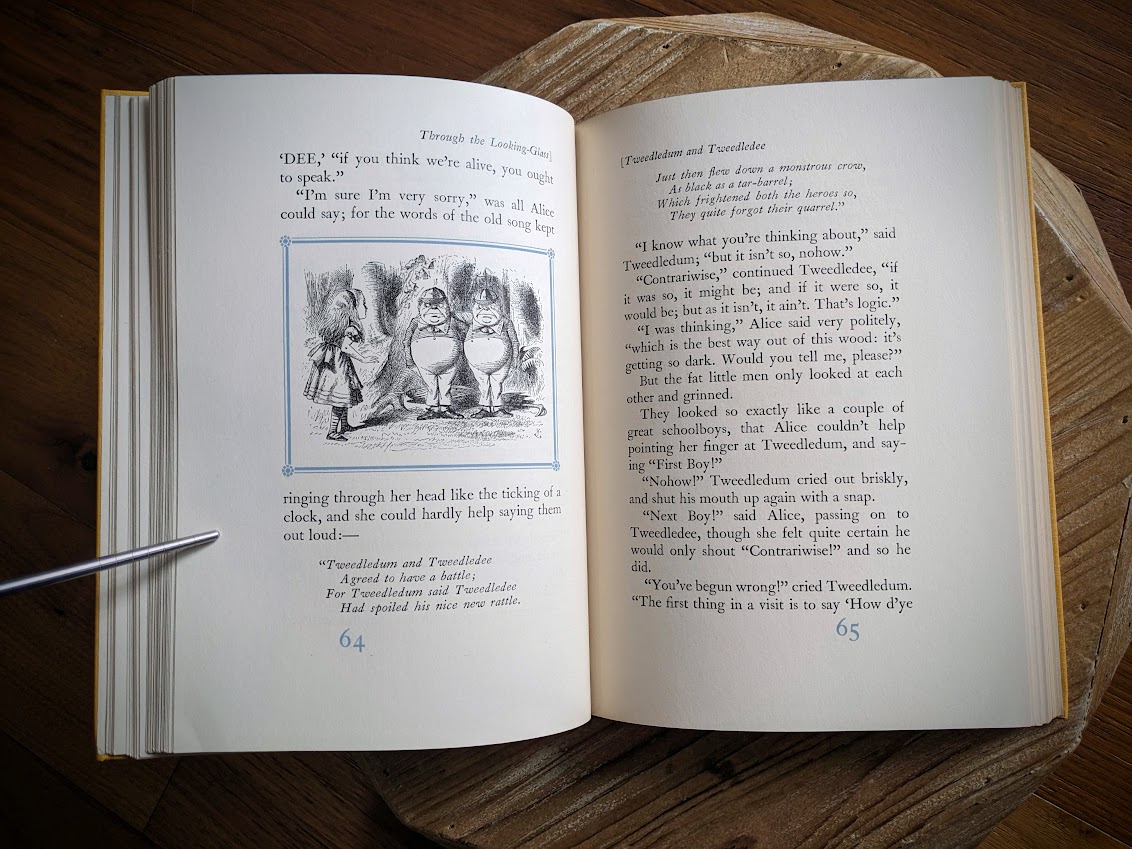 Through the Looking-Glass]
‘DEE,’ “if you think we’re alive, you ought
to speak.”
“I’m sure I’m very sorry,” was all Alice
could say; for the words of the old song kept
ringing through her head like the ticking of a
clock, and she could hardly help saying them
out loud:—
“Tweedledum and Tweedledee
Agreed to have a battle;
For Tweedledum said Tweedledee
Had spoiled his nice new rattle.
64
[Tweedledum and Tweedledee
Just then flew down a monstrous crow,
As black as a tar-barrel;
Which frightened both the heroes so,
They quite forgot their quarrel.”
“I know what you’re thinking about,” said
Tweedledum; “but it isn’t so, nohow.”
“Contrariwise,” continued Tweedledee, “if
it was so, it might be; and if it were so, it
would be; but as it isn’t, it ain’t. That’s logic.”
“I was thinking,” Alice said very politely,
“which is the best way out of this wood: it’s
getting so dark. Would you tell me, please?”
But the fat little men only looked at each
other and grinned.
They looked so exactly like a couple of
great schoolboys, that Alice couldn’t help
pointing her finger at Tweedledum, and say-
ing “First Boy!”
“Nohow!” Tweedledum cried out briskly,
and shut his mouth up again with a snap.
“Next Boy!” said Alice, passing on to
Tweedledee, though she felt quite certain he
would only shout “Contrariwise!” and so he
did.
“You’ve begun wrong!” cried Tweedledum.
“The first thing in a visit is to say ‘How d’ye
65